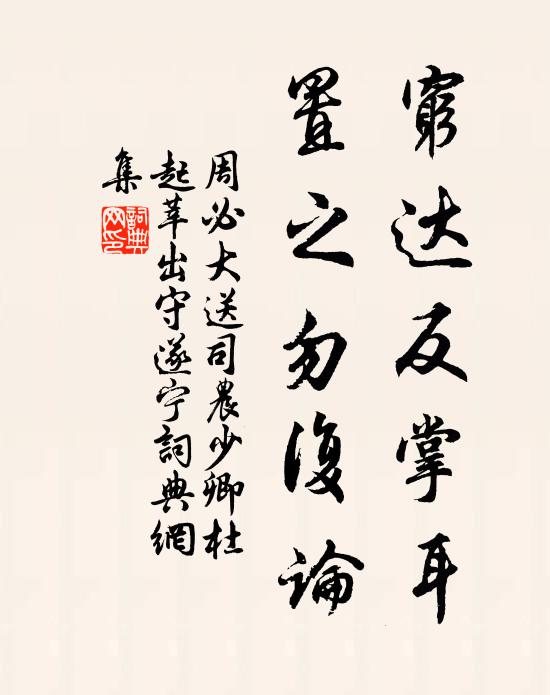 窮达反掌耳
置之勿復論
周必大送司農少卿杜
起莘出守遂宁詞典網
集
詞典
网印